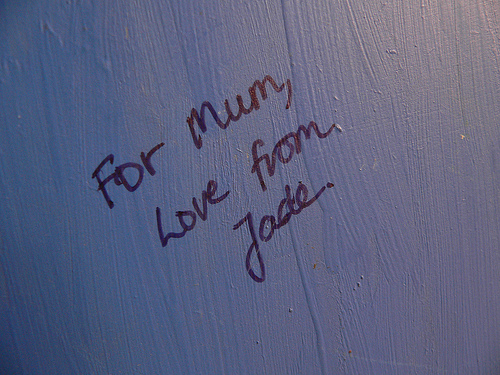 For Mum,
Love from
Jade.